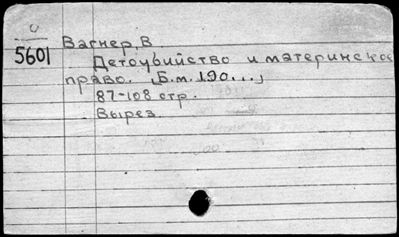 5601
Вагнер, В.
Детоубийство и материнское
право. [Б.м. 190...]
87-108 стр.
Вырез.